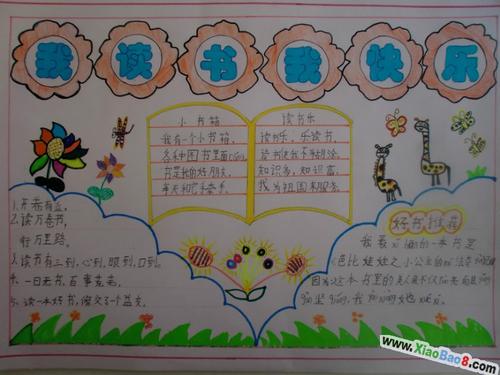 我读书我快乐
小书箱
我有一个小书箱,
各种图书里面
书是我的好朋友,
手牵手。
读书乐
读书乐、乐读书,
读书使我不糊涂,
知识多,知识富,
我为祖国来服务。
1、开卷有益。
2、读万卷书,
行万里路。
3、读书有三到,心到、眼到、口到。
4、一日无书,百事荒芜。
5、读一本好书,交了一个益友。
好书推荐
我最 的一本书是
《芭比娃娃之小公主的
因为这本书里的
www.XiaoBao8.com